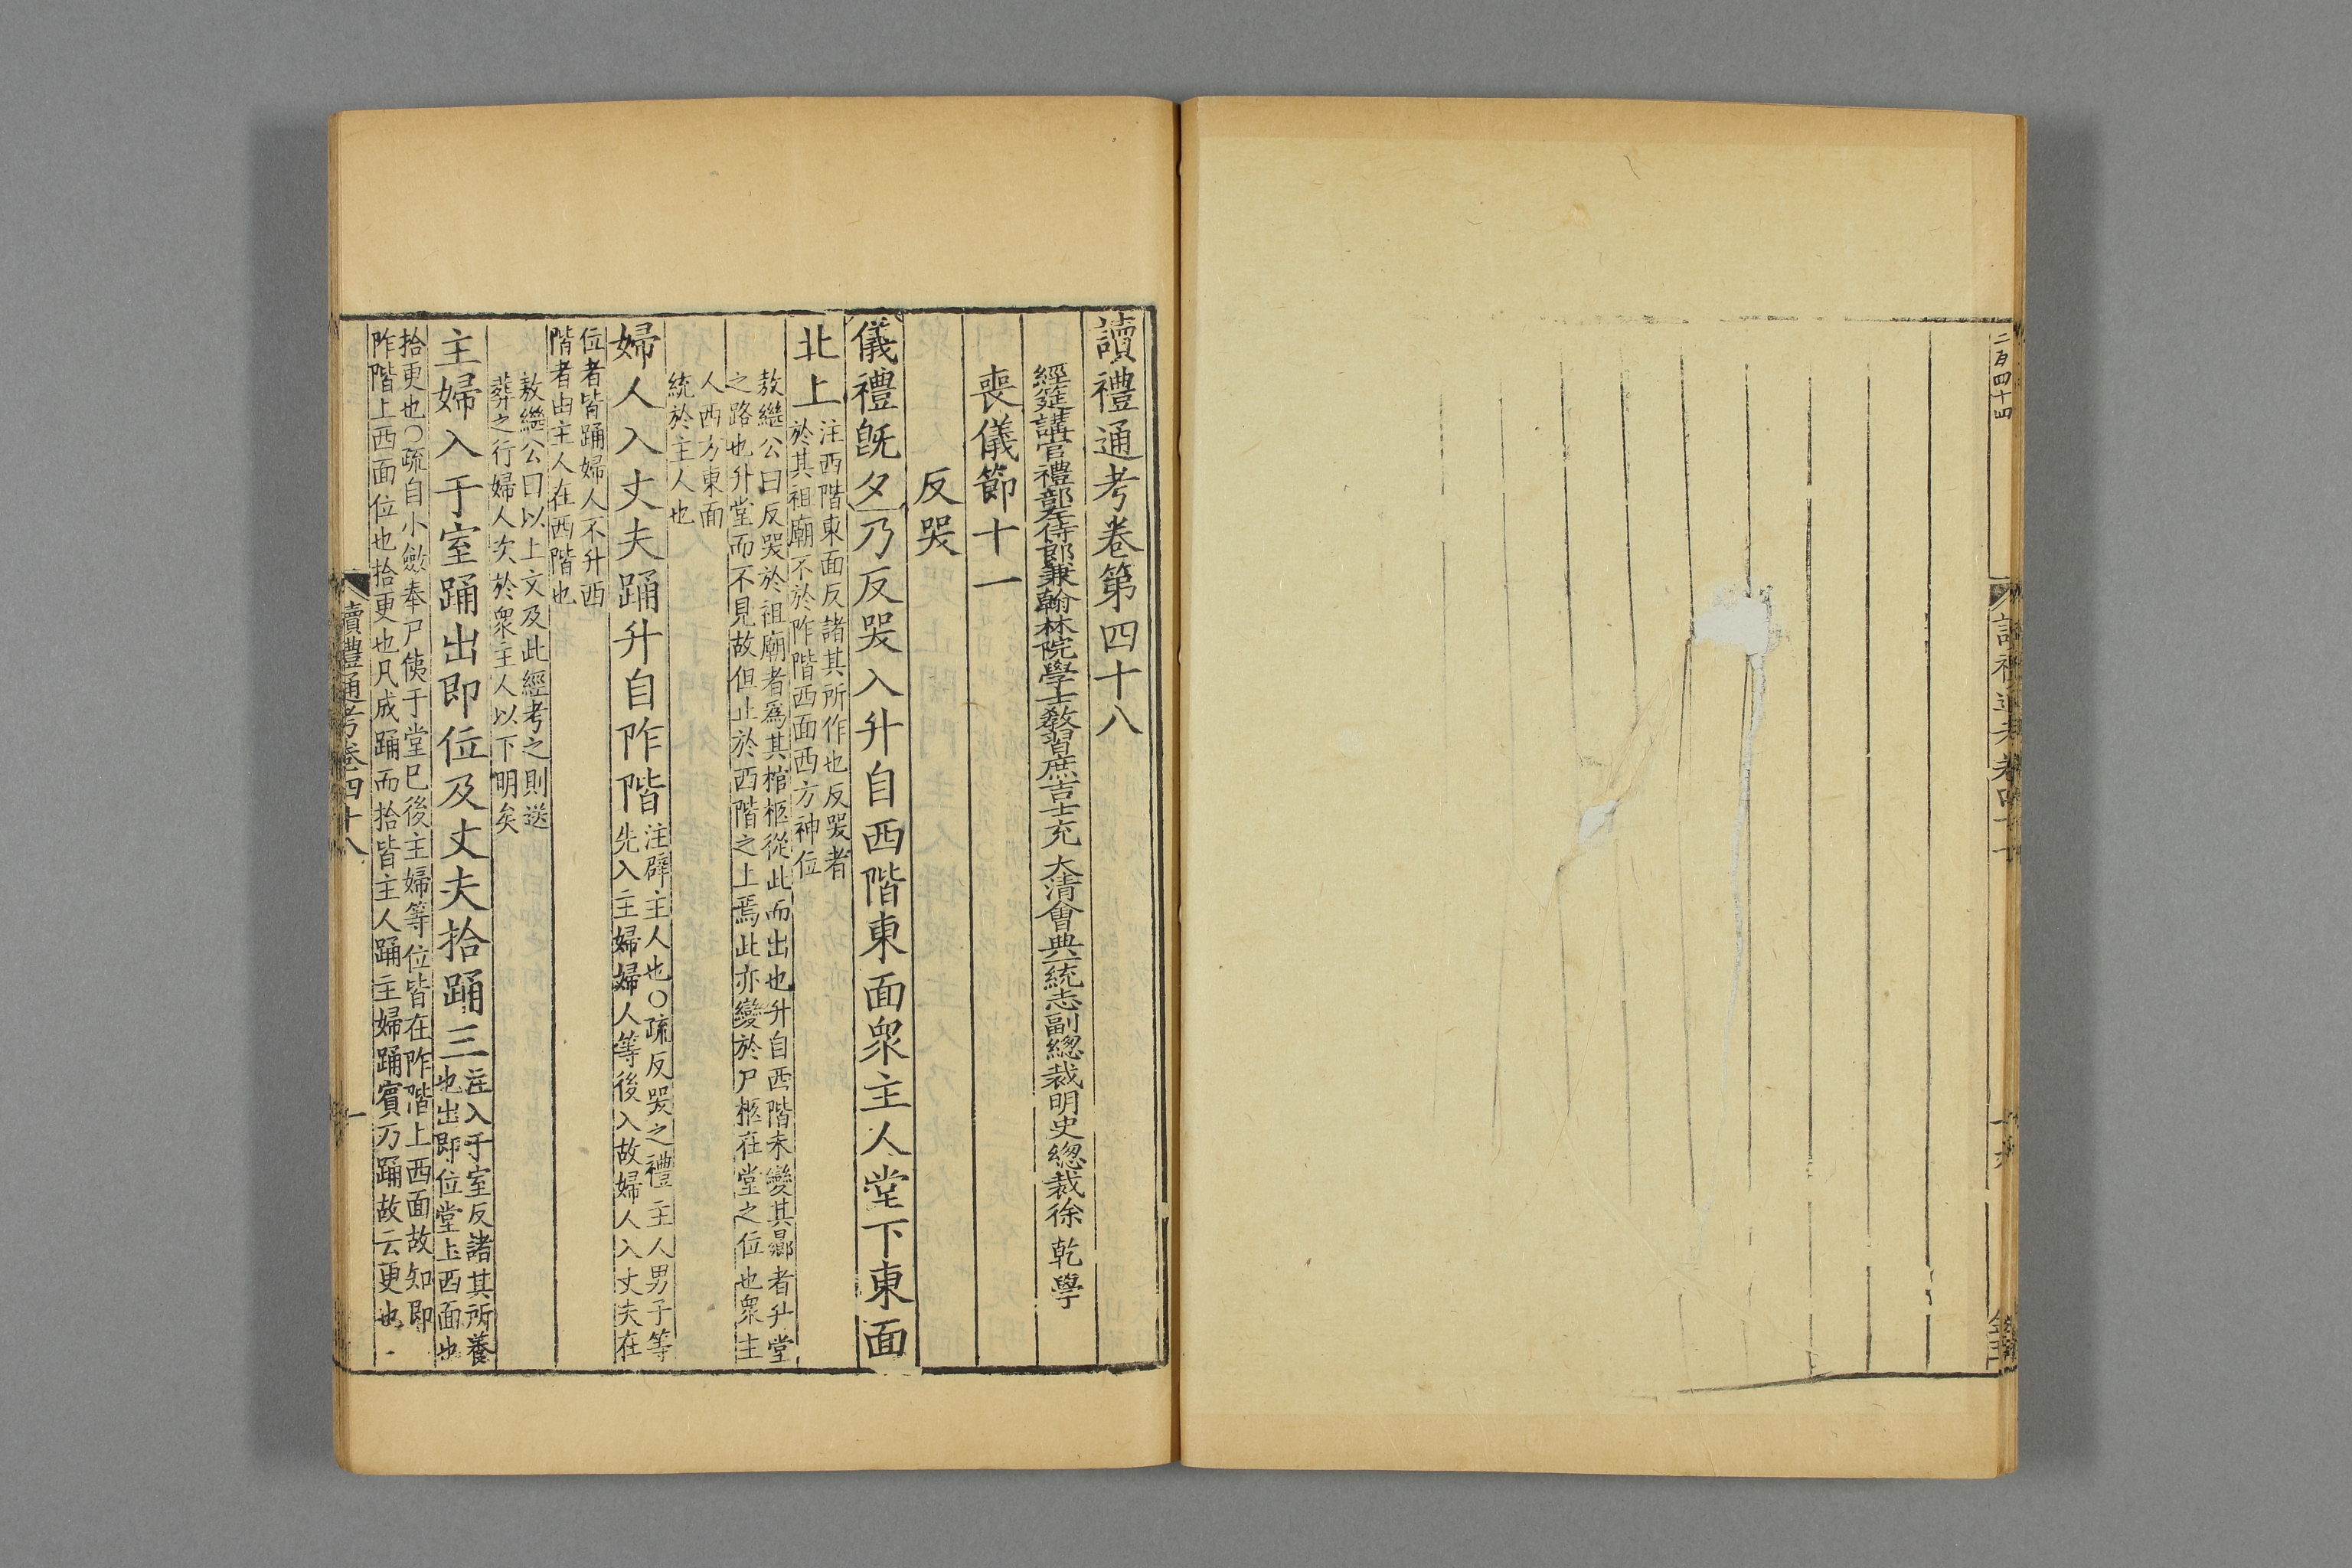 二百四十四
讀禮通考卷第四十八
經筵講官禮部左侍郎兼翰林院學士教習庶吉士充 大清會典一統志副總裁明史總裁徐 乾 學
喪儀節十一
反哭
儀禮旣夕乃反哭入升自西階東面衆主人堂下東面
北上
注西階東面反諸其所作也反哭者
於其祖廟不於阼階西面西方神位
敖繼公曰反哭於祖廟者爲其棺柩從此而出也升自西階未變其鄉者升堂
之路也升堂而不見故但止於西階之上焉此亦變於尸柩在堂之位也衆主
人西方東面
統於主人也
婦人入丈夫踊升自阼階
注辟主人也○疏反哭之禮主人男子等
先入主婦婦人等後入故婦人入丈夫在
位者皆踊婦人不升西
階者由主人在西階也
敖繼公曰以上文及此經考之則送
葬之行婦人次於衆主人以下明矣
主婦入于室踊出即位及丈夫拾踊三
注入于室反諸其所養
也出即位堂上西面也
拾更也○疏自小斂奉尸侇于堂已後主婦等位皆在阼階上西面故知即
阼階上西面位也拾更也凡成踊而拾皆主人踊主婦踊賓乃踊故云更也
讀禮通考卷四十八
一